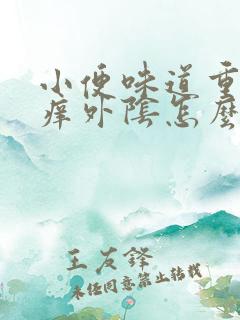 小便味道重
痒外陰怎麼
王友鋒
未经同意禁止转载